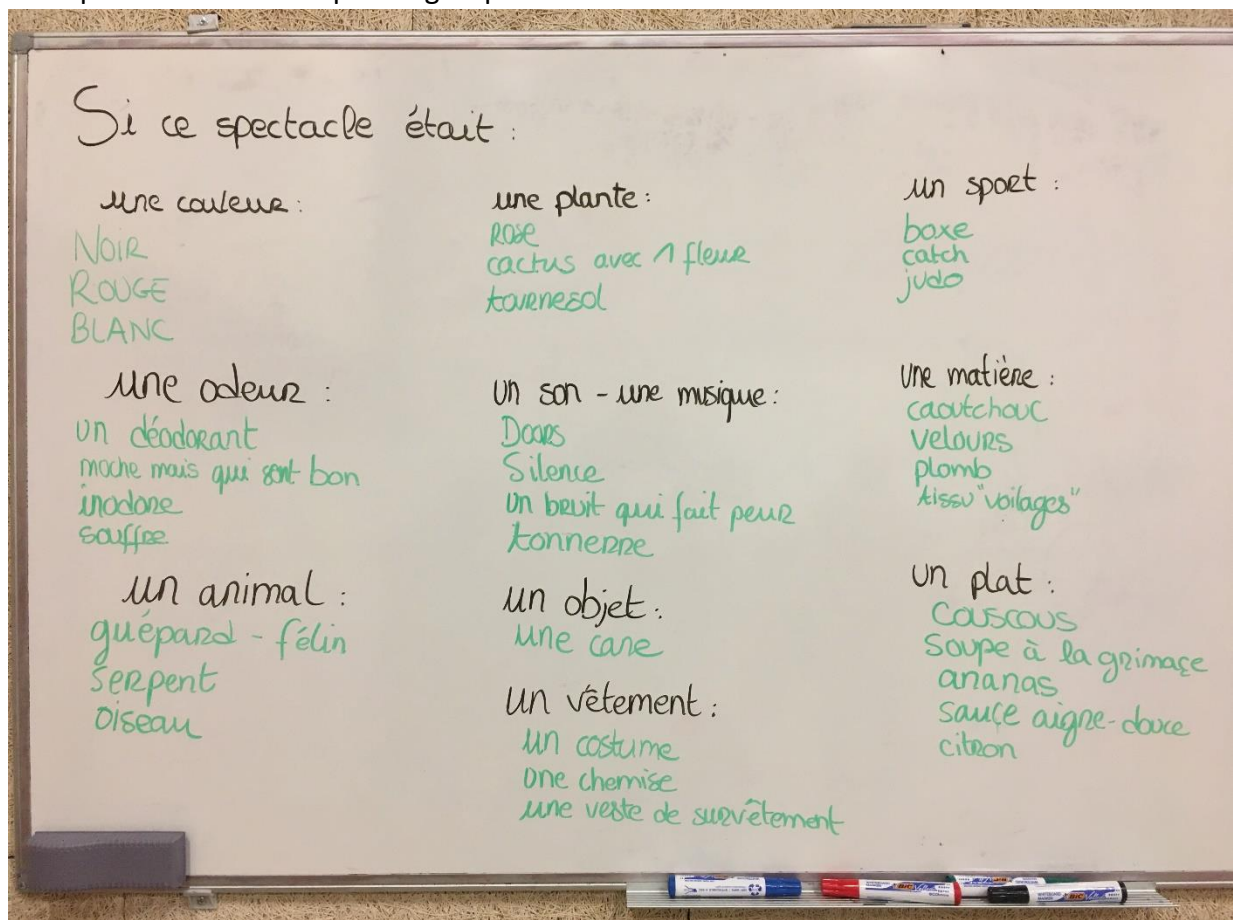 Si ce spectacle était :
une couleur :
NOIR
ROUGE
BLANC
une odeur :
un déodorant
moche mais qui sent bon
inodore
souffre
un animal :
guépard - félin
serpent
oiseau
une plante :
ROSE
cactus avec 1 fleur
tournesol
un son - une musique :
Doors
Silence
un bruit qui fait peur
tonnerre
un objet :
une cane
un vêtement :
un costume
une chemise
une veste de survêtement
un sport :
boxe
catch
judo
une matière :
caoutchouc
velours
plomb
tissu "voilages"
un plat :
couscous
soupe à la grimace
ananas
sauce aigre-douce
citron
BIC
BIC